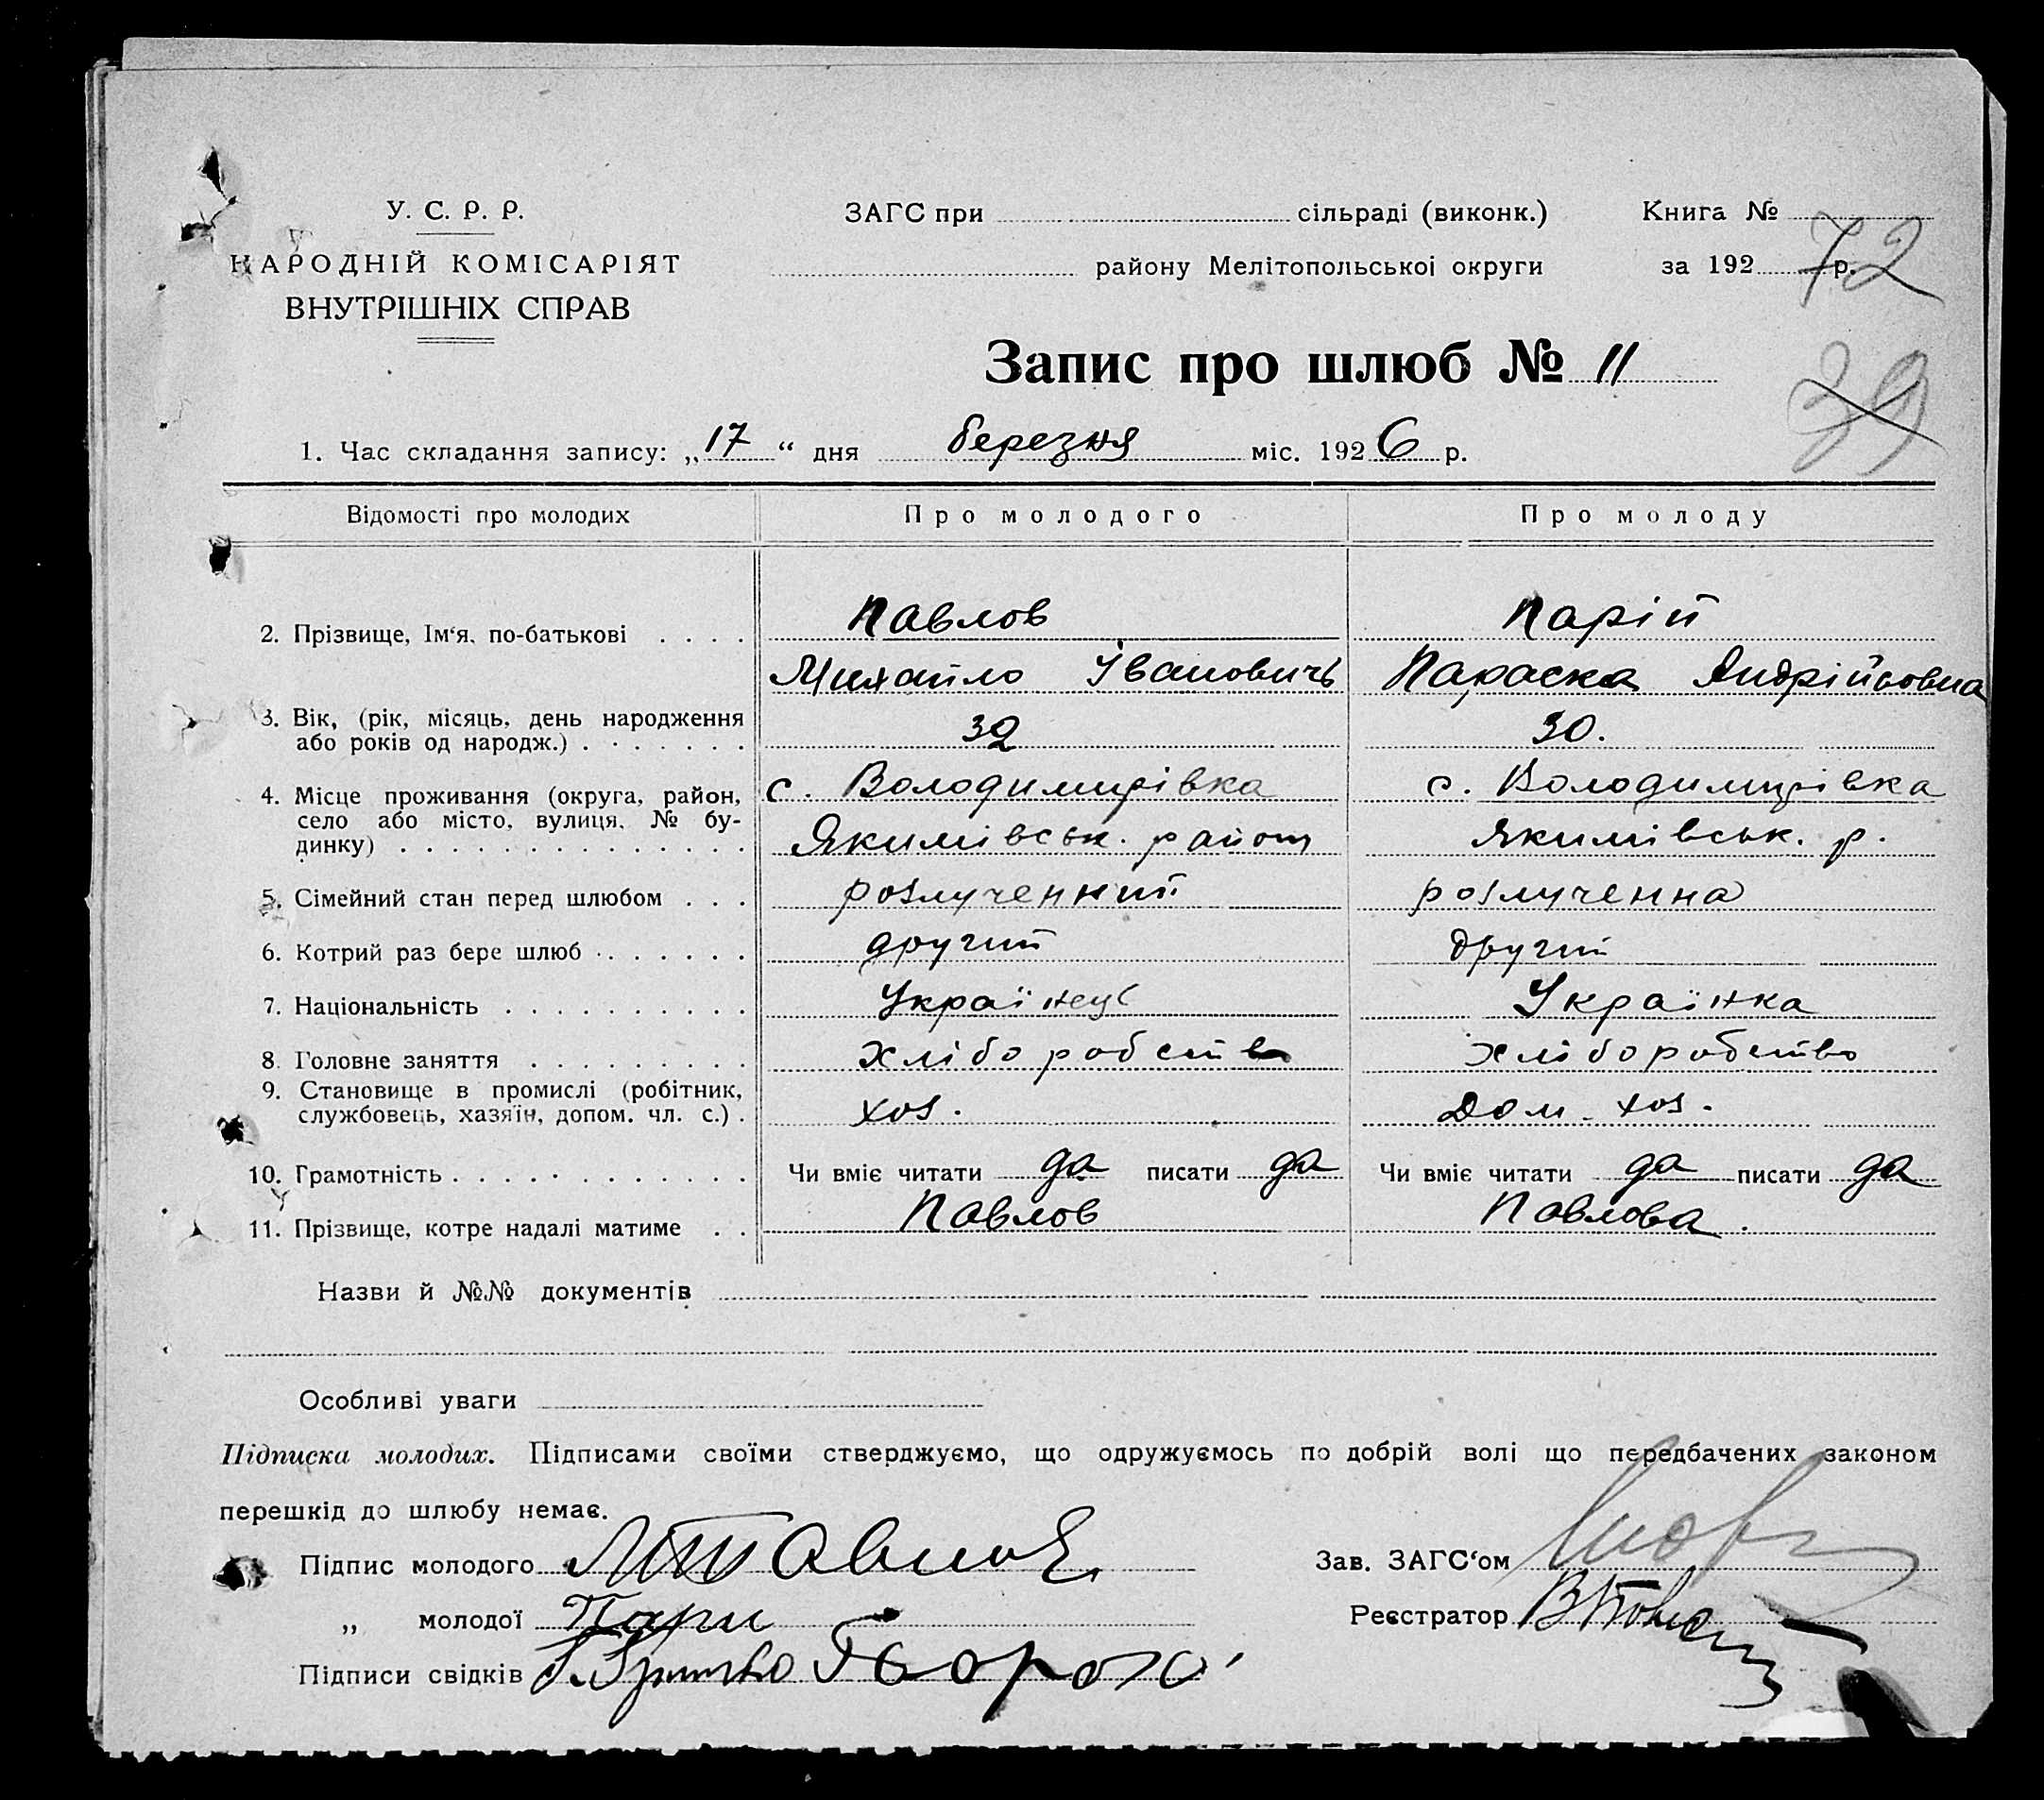 У. С. Р. Р.
НАРОДНІЙ КОМІСАРІЯТ
ВНУТРІШНІХ СПРАВ
ЗАГС при сільраді (виконк.)
району Мелітопольської округи
Книга №
за 192 р.
72
39
Запис про шлюб № 11
1. Час складання запису: „17“ дня березня міс. 1926 р.
Відомості про молодих Про молодого Про молоду
Павлов Парій
2. Прізвище, Ім‘я, по-батькові
Михайло Івановичь Параска Андрійовна
3. Вік, (рік, місяць, день народження 32 30.
або років од народж.)
с. Володимирівка с. Володимирівка
4. Місце проживання (округа, район,
село або місто, вулиця, № бу-
динку) Якимівськ. район Якимівськ. р.
5. Сімейний стан перед шлюбом розлученний розлученна
6. Котрий раз бере шлюб другий другий
7. Національність Українець Українка
8. Головне заняття хліборобство хліборобство
9. Становище в промислі (робітник,
службовець, хазяїн, допом. чл. с.) хоз. Дом. хоз.
10. Грамотність Чи вміє читати да писати да Чи вміє читати да писати да
11. Прізвище, котре надалі матиме Павлов Павлова.
Назви й №№ документів
Особливі уваги
Підписка молодих. Підписами своїми стверджуємо, що одружуємось по добрій волі що передбачених законом
перешкід до шлюбу немає.
Підпис молодого Зав. ЗАГС‘ом
„ молодої Пари Реєстратор
Підписи свідків